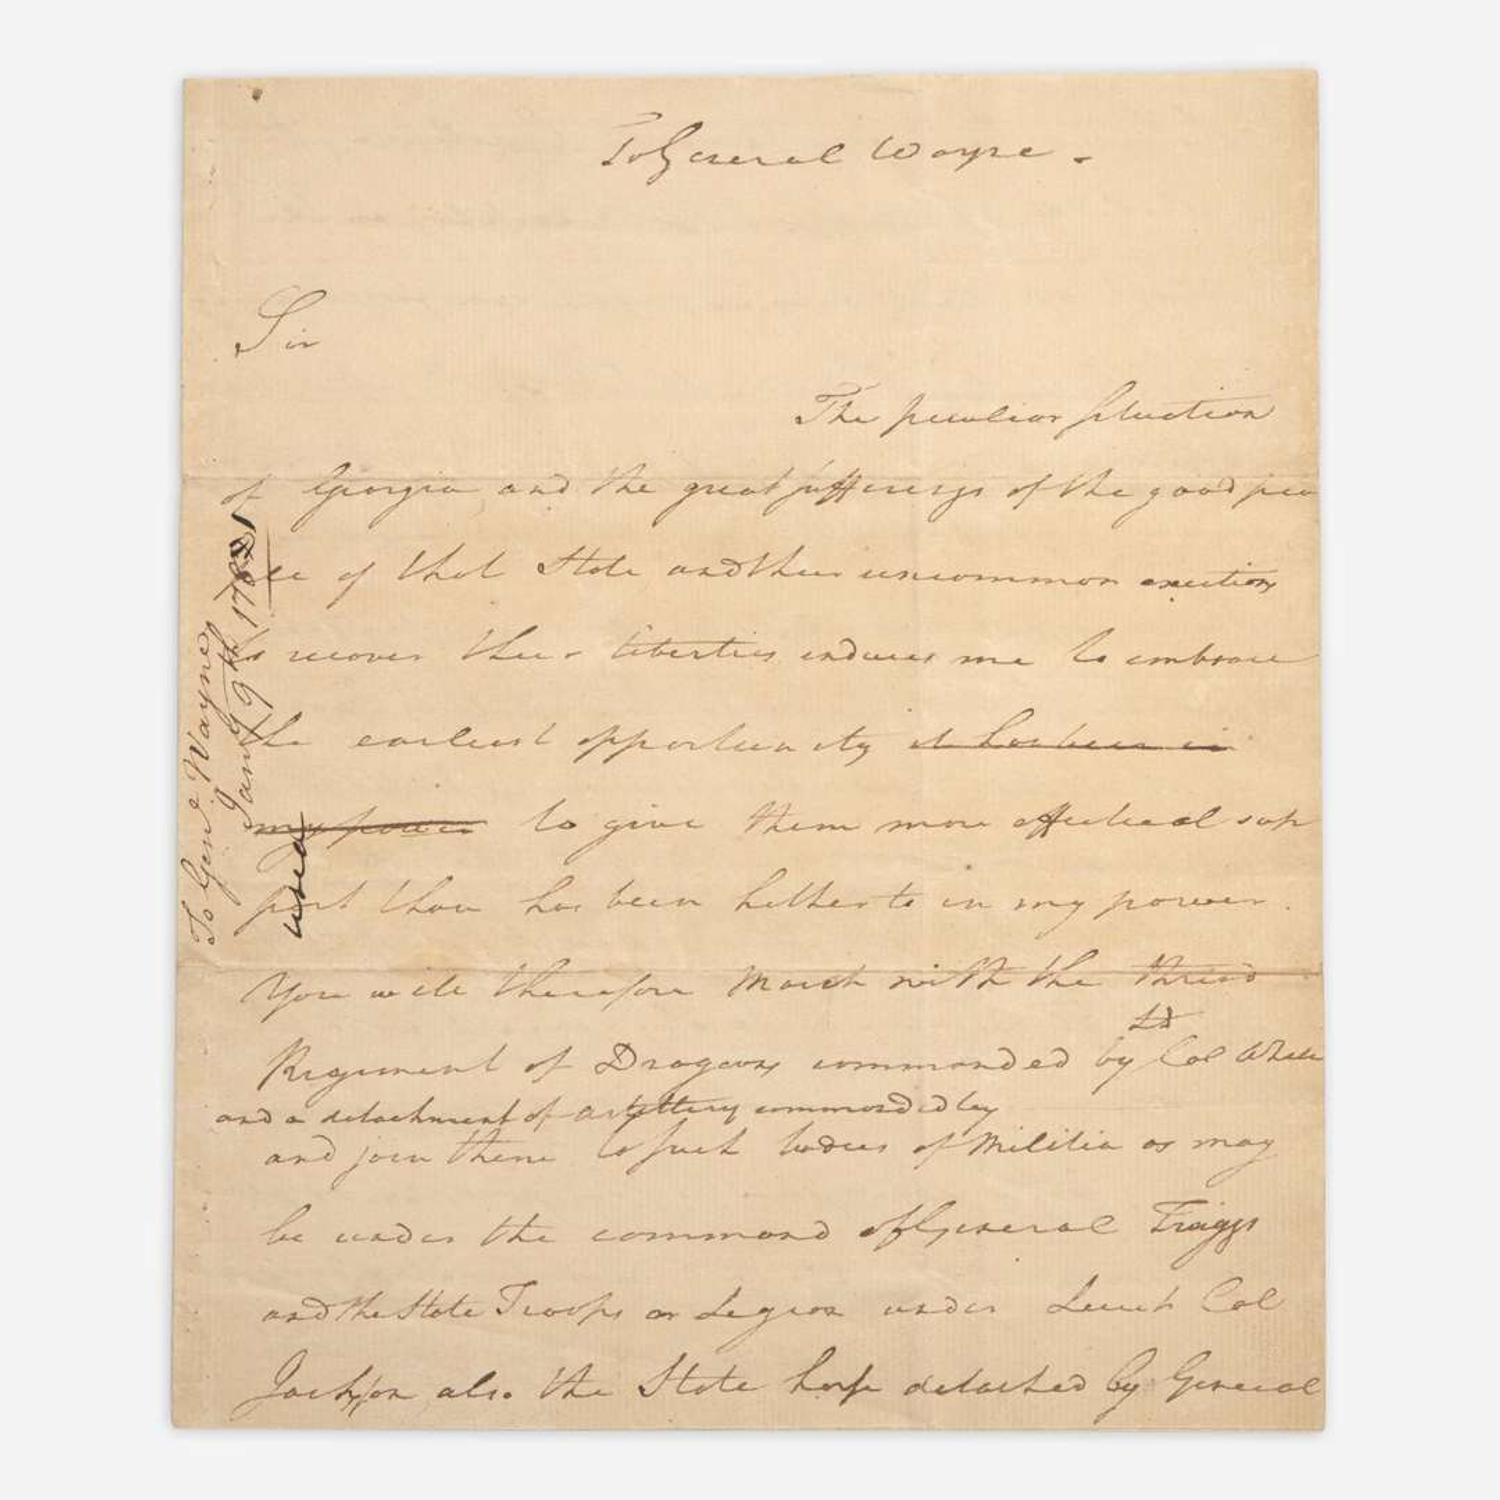 To General Wayne.
Sir
The peculiar situation
of Georgia and the great sufferings of the good peo
ple of that State and their uncommon exertions
to recover their liberties induces me to embrace
the earliest opportunity it has been in
my power to give them more effectual sup
port than has been hitherto in my power.
You will therefore march with the third
Lt
Regiment of Dragoons commanded by Col White
and a detachment of artillery commanded by
and join them to such bodies of Militia as may
be under the command of General Twiggs
and the State Troops or Legion under Lieut Col
Jackson also the State horse detached by General
To Genl Wayne
Jany 9th 1782
used